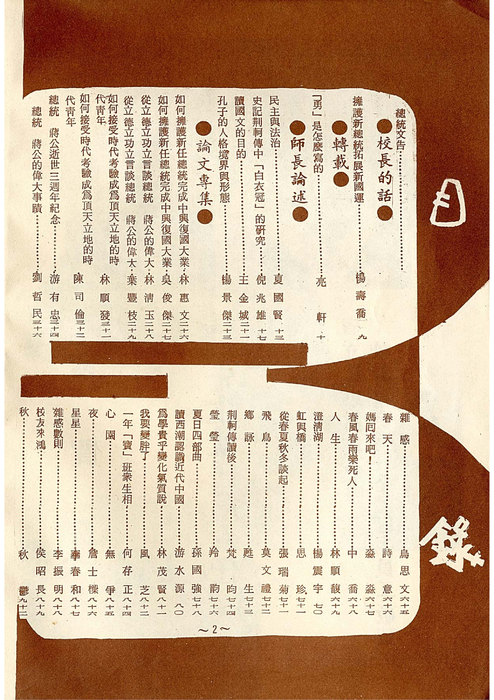 目錄
總統文告
●校長的話●
擁護新總統拓展新國運 楊壽喬 九
●轉載●
「勇」是怎麼寫的 亮軒 十
●師長論述●
民主與法治 夏國賢 十三
史記荊軻傳中「白衣冠」的研究 倪兆雄 十七
讀國文的目的 王金城 二十一
孔子的人格境界與形態 楊景傑 二十三
●論文專集●
如何擁護新任總統完成中興復國大業 林惠文 二十六
如何擁護新任總統完成中興復國大業 吳俊傑 二十七
從立德立功立言談總統 蔣公的偉大 林清玉 二十八
從立德立功立言談總統 蔣公的偉大 葉豐枝 二十九
如何接受時代考驗成為頂天立地的時代青年 林順發 三十一
如何接受時代考驗成為頂天立地的時代青年 陳司倫 三十二
總統 蔣公逝世三週年紀念 游有忠 三十四
總統 蔣公的偉大事蹟 劉哲民 三十六
雜感 烏思文 六十五
春天 詩意 六十六
媽回來吧! 淼淼 六十七
春風春雨樂死人 中喬 六十八
人生 林順馥 六十九
澄清湖 楊震宇 七〇
虹與橋 思珍 七十一
從春夏秋冬談起 張瑞菊 七十一
飛鳥 莫文禮 七十二
鄉詠 甦生 七十三
荊軻傳讀後 梵昀 七十四
瑩瑩 羚韵 七十六
夏日四部曲 孫國強 七十八
讀西潮認識近代中國 游水源 八〇
為學貴乎變化氣質說 林茂賢 八十一
我要變胖了 風芝 八十二
一年「寶」班衆生相 何存正 八十四
心園 無伊 八十五
夜 詹士樑 八十六
星星 辜春和 八十七
雜感數則 李振明 八十八
校友來鴻 侯昭長 八十九
秋 秋鬱 九十二
～2～